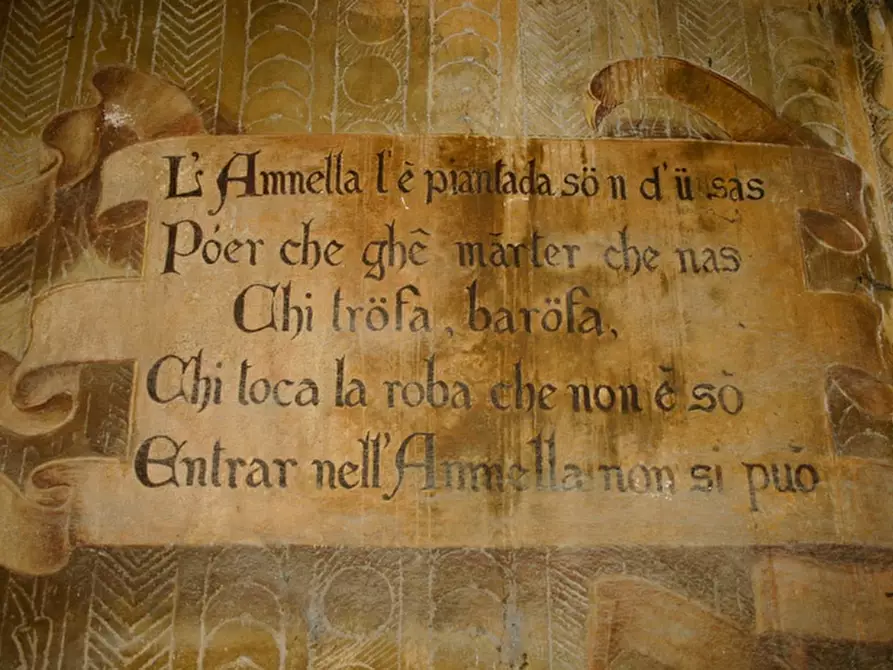 L's Amnella l'è piantada sö n d'ü sas
Póer che ghê mārter che nas
Chi tröfa, baröfa,
Chi toca la roba che non è sò
Entrar nell'Ammella non si può